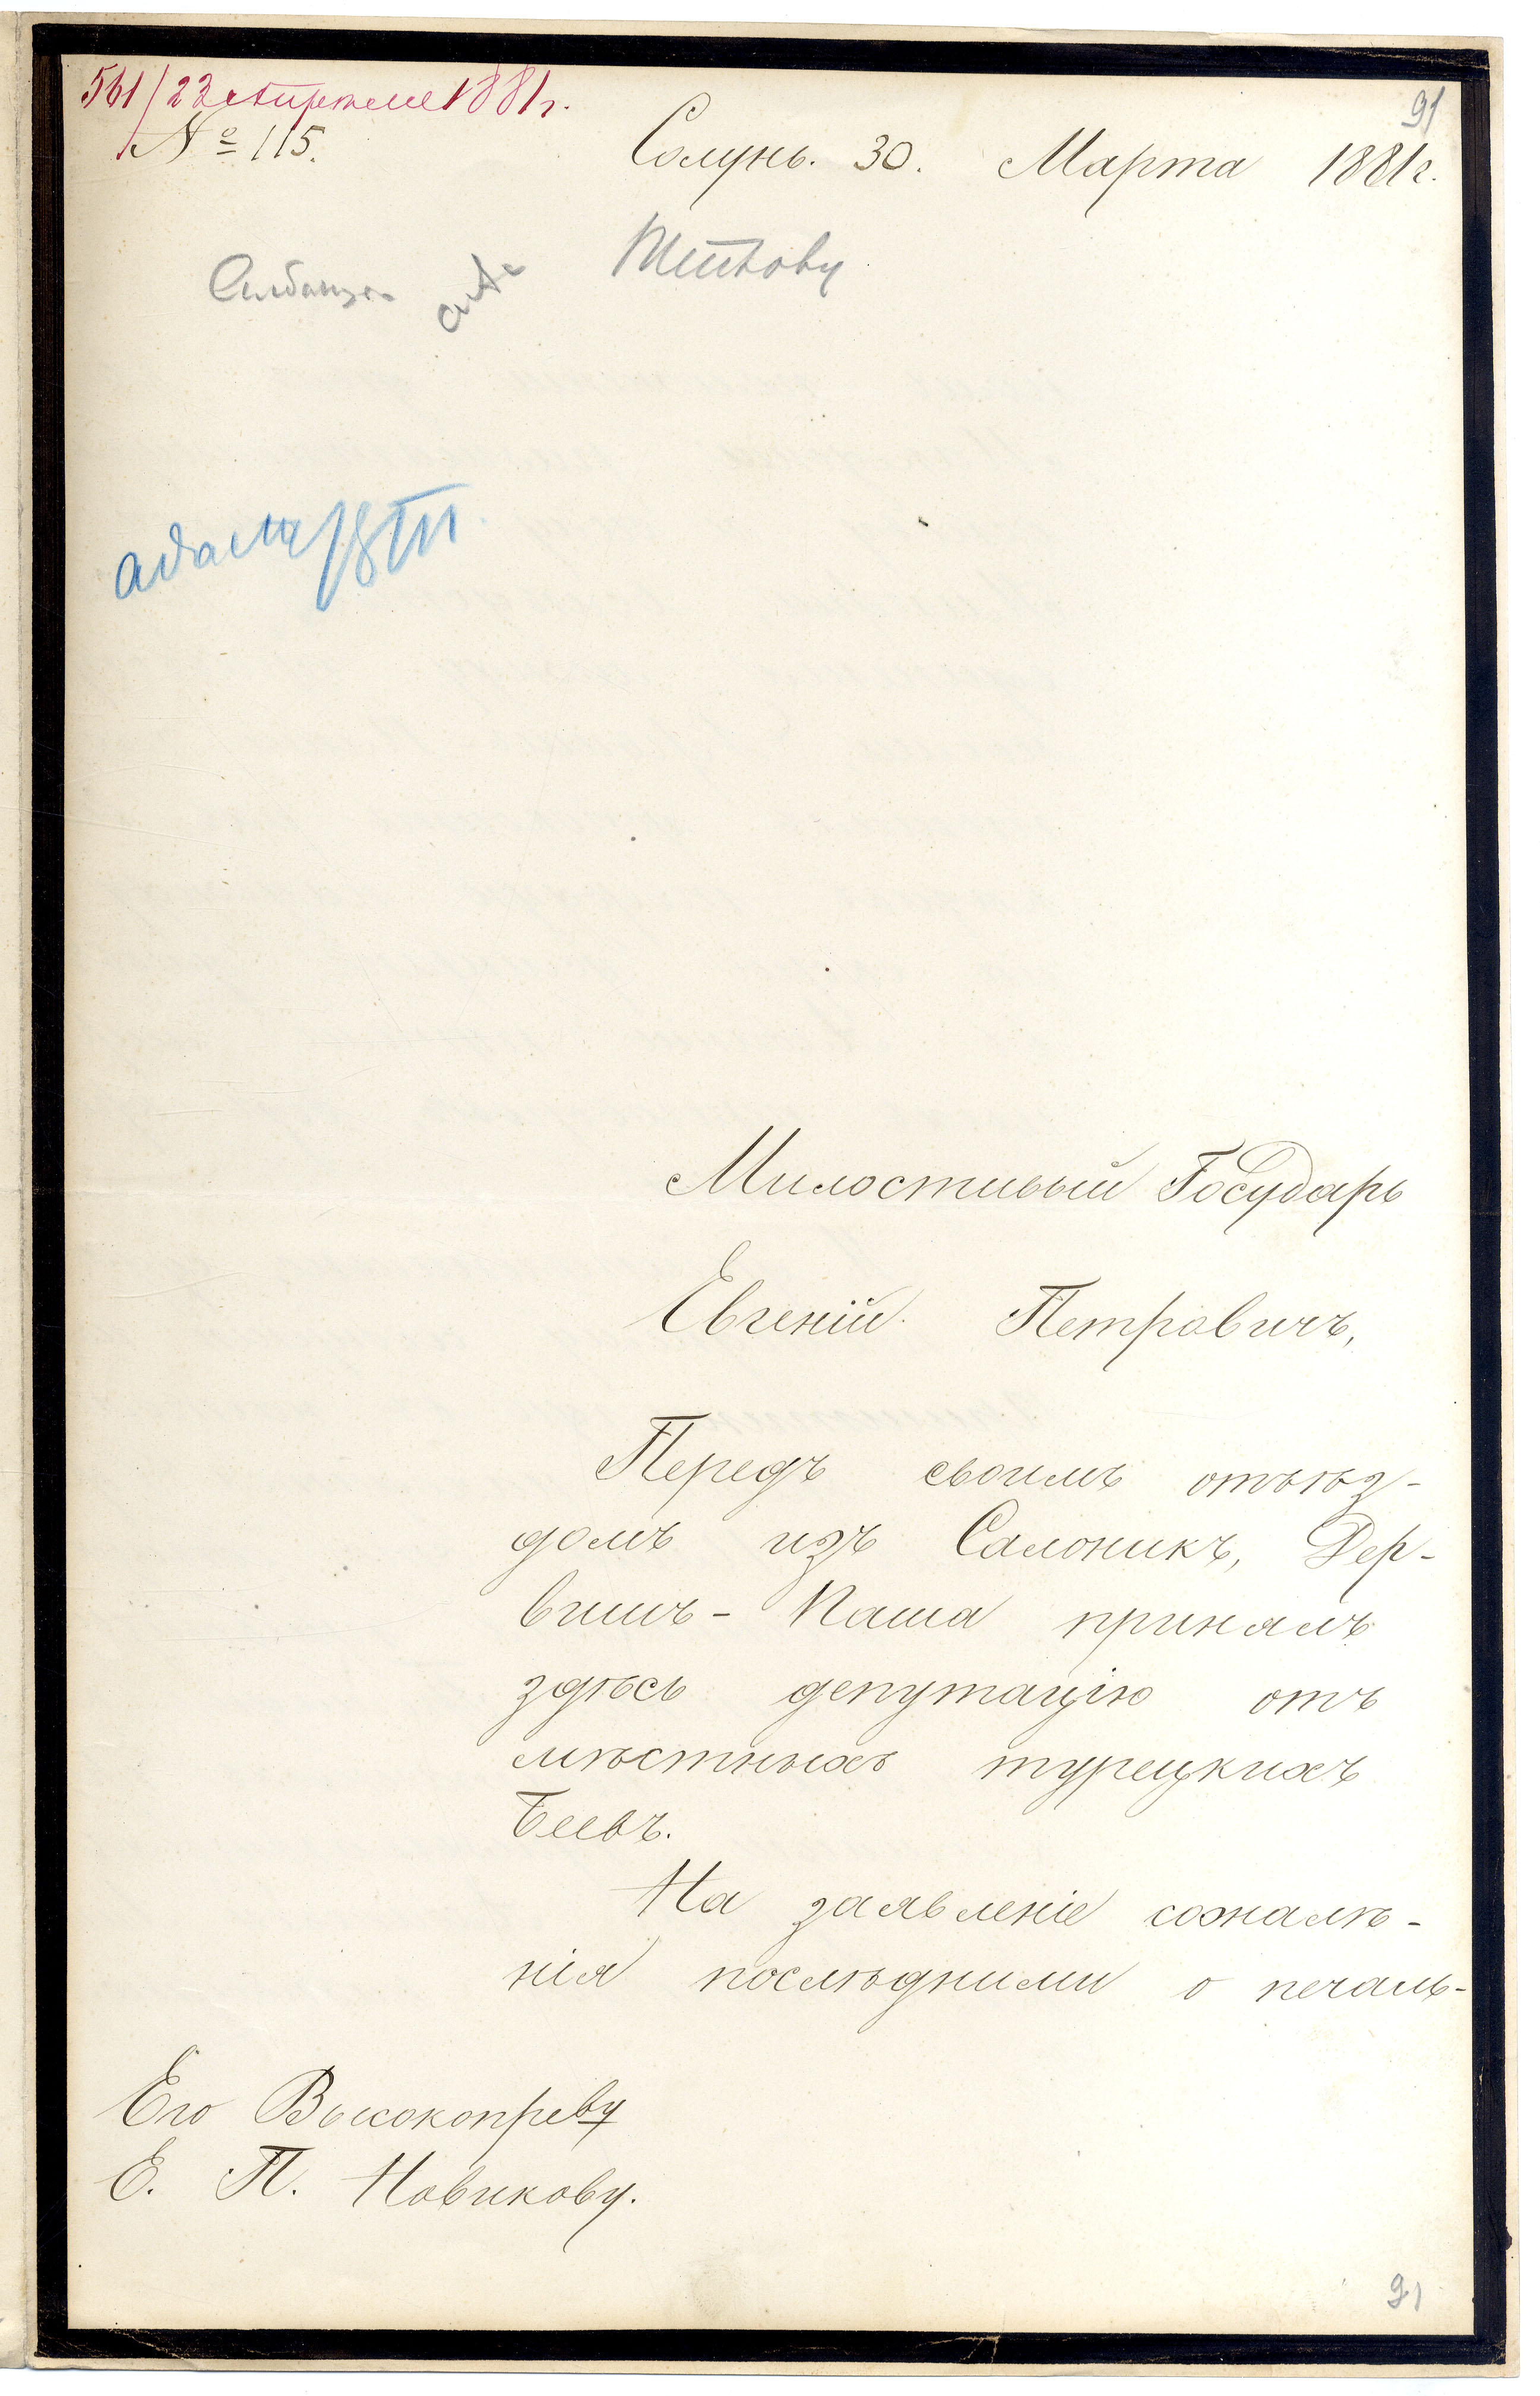 561/23 Апреля 1881 г.
91
№ 115.
Солунь. 30. Марта 1881 г.
Милостивый Государь
Евгеній Петровичъ,
Передъ своимъ отъѣз-
домъ изъ Салоникъ, Дер-
вишъ-Паша принялъ
здѣсь депутацію отъ
мѣстныхъ турецкихъ
беевъ.
На заявленіе сожалѣ-
нія послѣдними о печаль-
Его Высокопрев-ву
Е. П. Новикову.
91